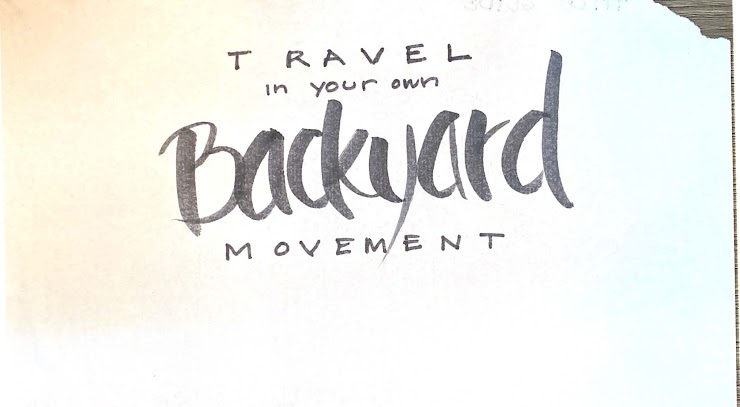 TRAVEL
in your own
Backyard
MOVEMENT